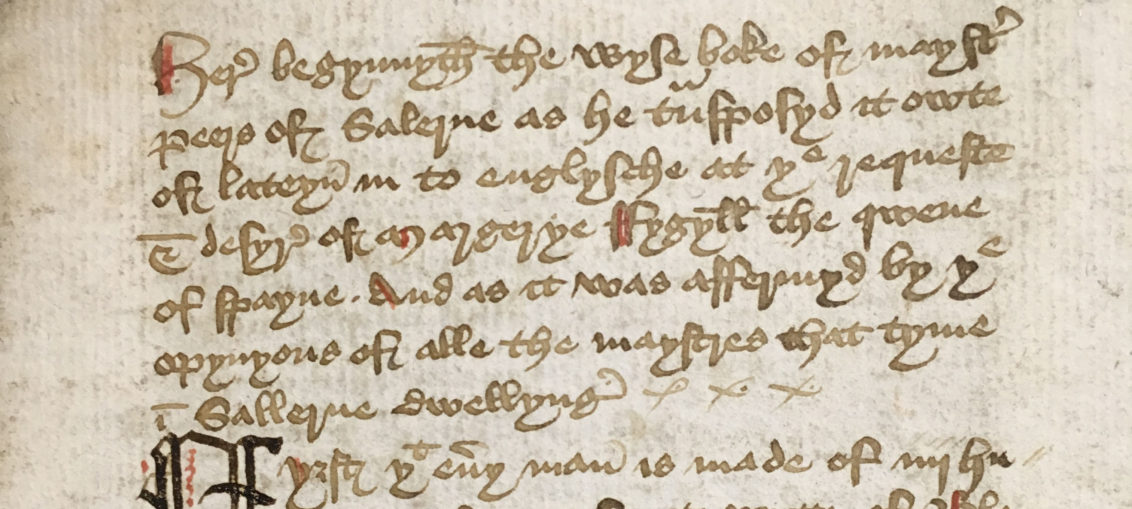 Her' begynnyth the wyse boke of mayst'
peers of Salerne as he tansposyd it owte
of lateyn in to englysche at yᵉ requeste
& desyr' of margerye ffygyll the qwene
of spayne. And as it was affermyd by yᵉ
opynyons of alle the maystres that tyme
ī Sallerne dwellyng' x x x
Fyrst yᵗ eūy man is made of iiij hu